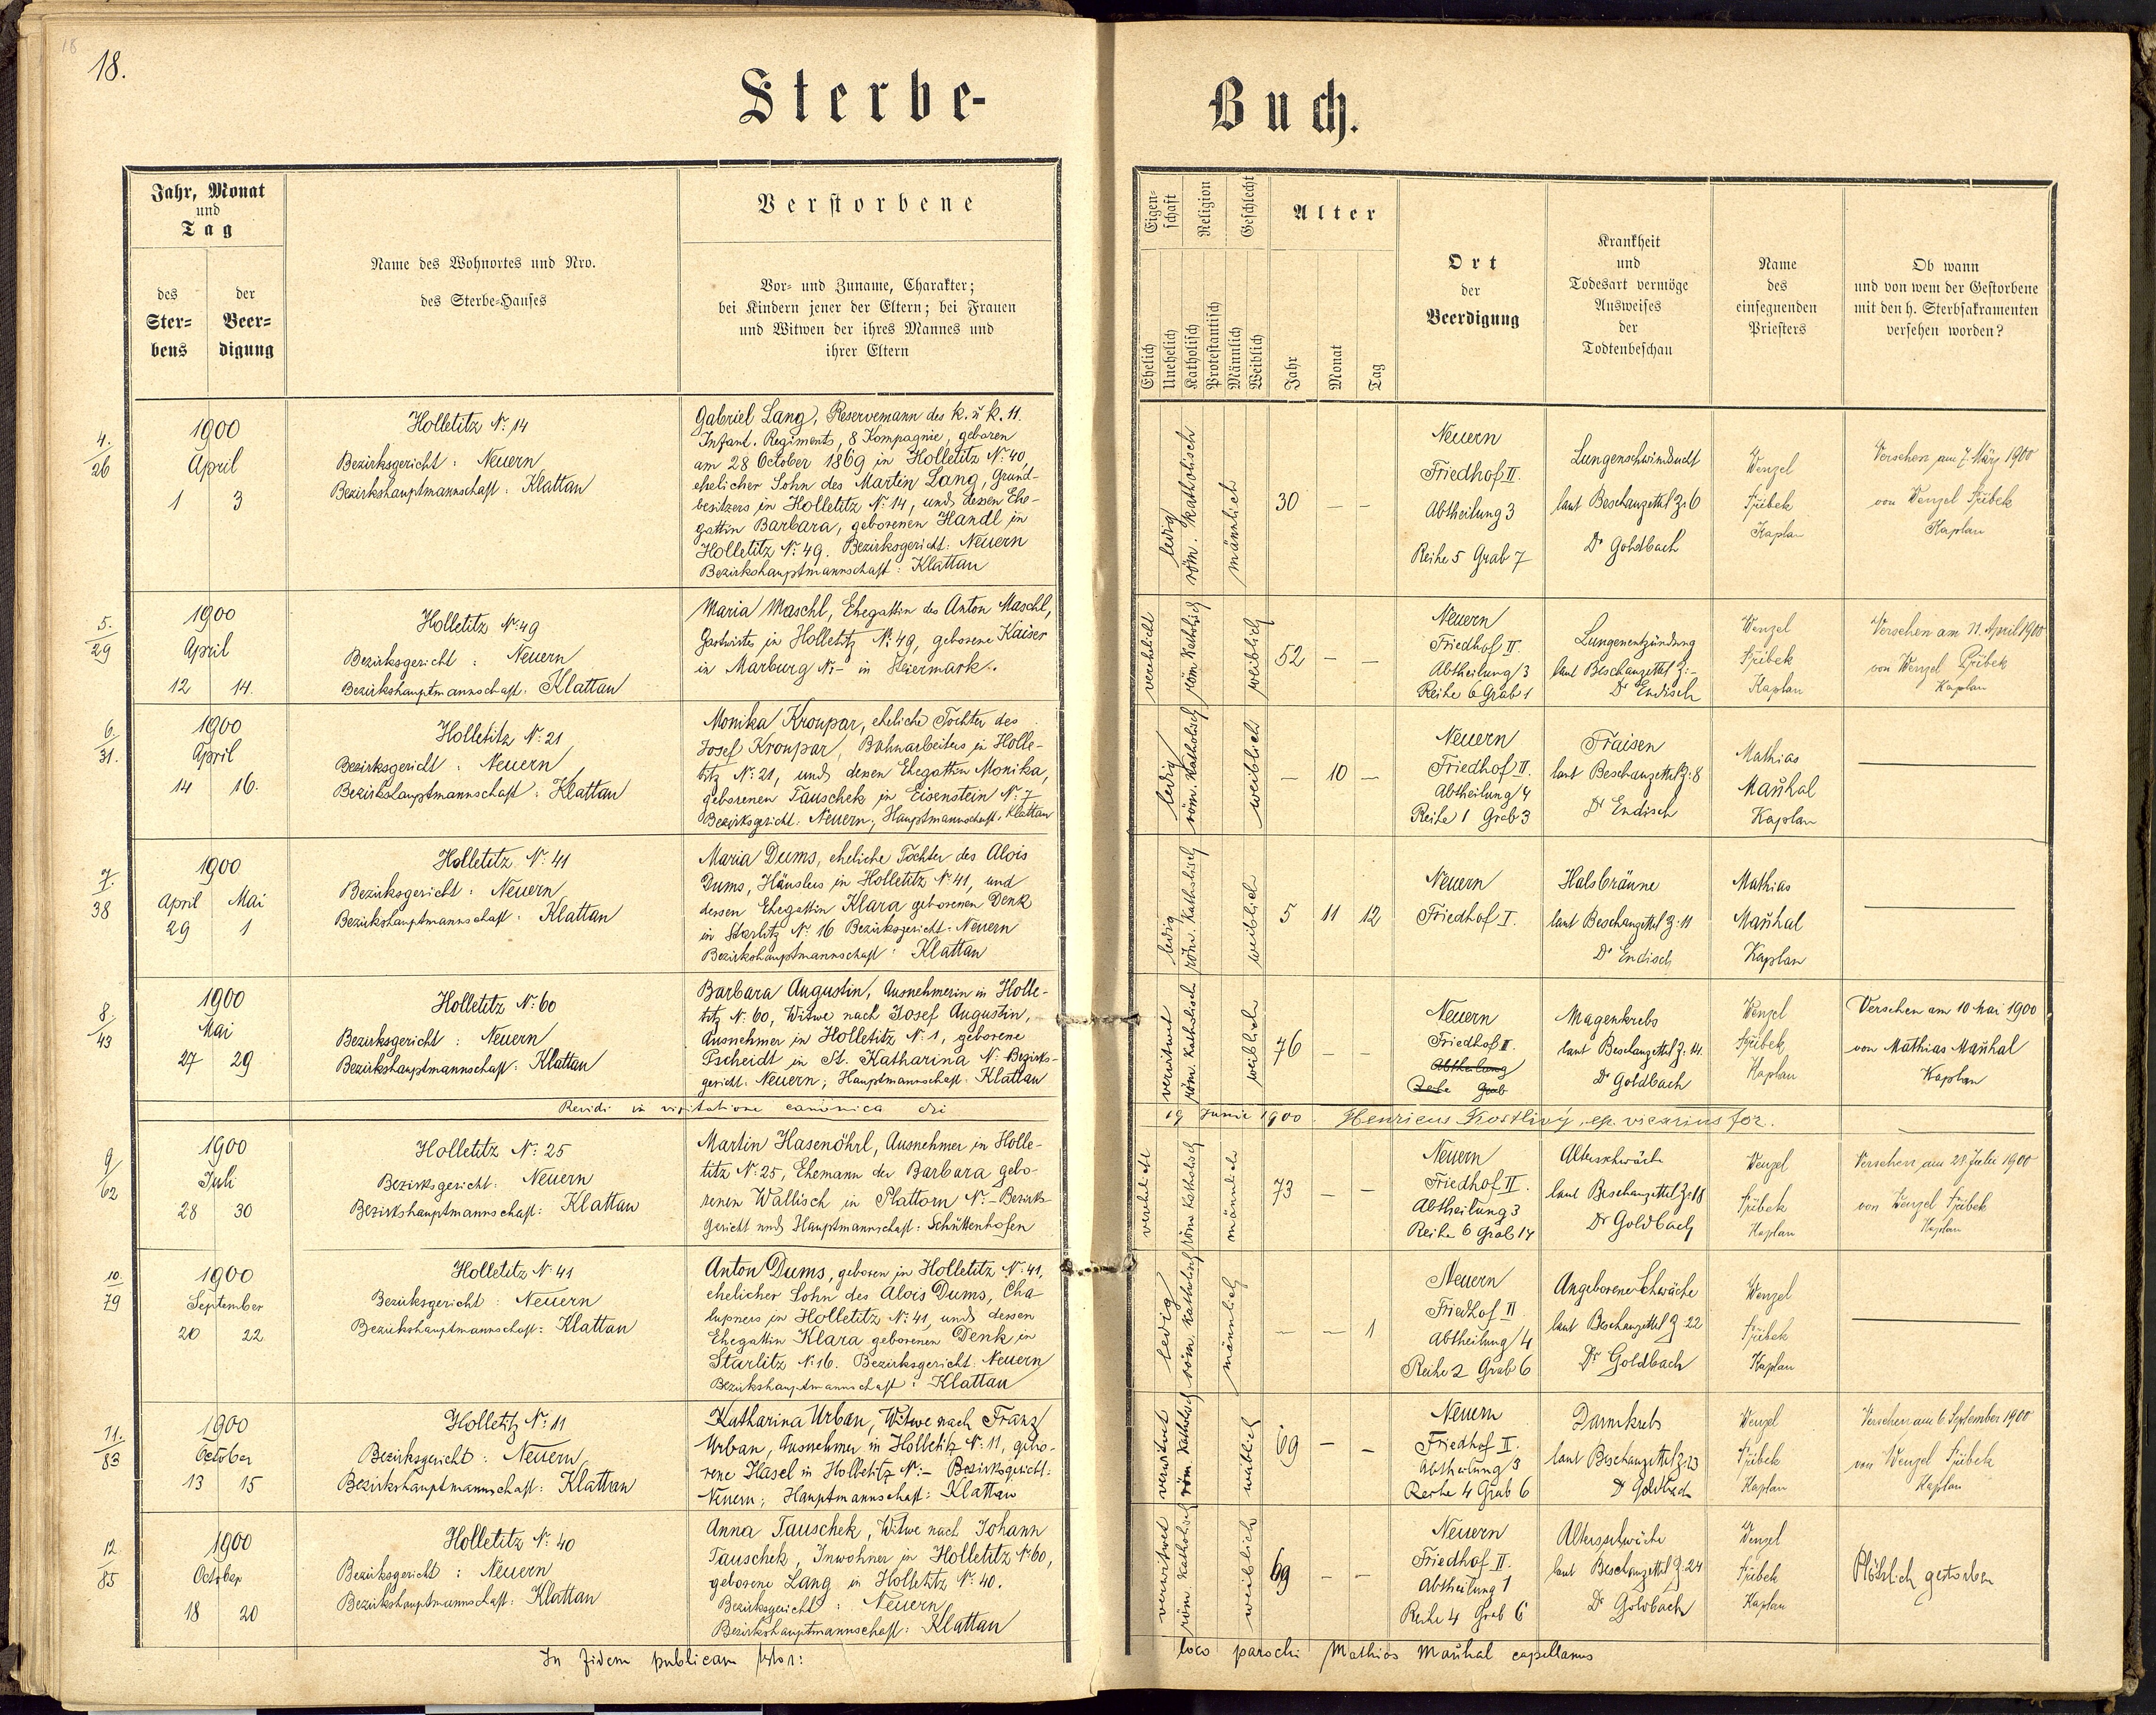 18
18.
Sterbe-
Buch.
Jahr, Monat
und
Tag
des
Ster-
bens
der
Beer-
digung
Name des Wohnortes und Nro.
des Sterbe-Hauses
Verstorbene
Vor- und Zuname, Charakter;
bei Kindern jener der Eltern; bei Frauen
und Witwen der ihres Mannes und
ihrer Eltern
Eigen-
schaft
Religion
Geschlecht
Alter
Ehelich
Unehelich
Katholisch
Protestantisch
Männlich
Weiblich
Jahr
Monat
Tag
Ort
der
Beerdigung
Krankheit
und
Todesart vermöge
Ausweises
der
Todtenbeschau
Name
des
einsegnenden
Priesters
Ob wann
und von wem der Gestorbene
mit den h. Sterbsakramenten
versehen worden?
4.
26
1900
April
1 3
Holletitz N: 14
Bezirksgericht: Neuern
Bezirkshauptmannschaft: Klattau
Gabriel Lang, Reservemann des k. u k. 11.
Infant. Regiments, 8 Kompagnie, geboren
am 28 October 1869 in Holletitz N: 40,
ehelicher Sohn des Martin Lang, Grund-
besitzers in Holletitz N: 14, und dessen Ehe-
gattin Barbara, geborenen Handl in
Holletitz N: 49. Bezirksgericht: Neuern
Bezirkshauptmannschaft: Klattau
ledig
röm. Katholisch
männlich
30 – –
Neuern
Friedhof II.
Abtheilung 3
Reihe 5 Grab 7
Lungenschwindsucht
laut Beschauzettel Z: 6
Dr Goldbach
Wenzel
Přibek
Kaplan
Versehen am 7. März 1900
von Wenzel Přibek
Kaplan
5.
29
1900
April
12 14.
Holletitz N: 49
Bezirksgericht: Neuern
Bezirkshauptmannschaft: Klattau
Maria Maschl, Ehegattin des Anton Maschl,
Gastwirts in Holletitz N: 49, geborene Kaiser
in Marburg N:- in Steiermark.
verehelicht
röm. Katholisch
weiblich
52 – –
Neuern
Friedhof II.
Abtheilung 3
Reihe 6 Grab 1
Lungenentzündung
laut Beschauzettel Z: -
Dr Endisch
Wenzel
Přibek
Kaplan
Versehen am 11. April 1900
von Wenzel Přibek
Kaplan
6.
31.
1900
April
14 16.
Holletitz N: 21
Bezirksgericht: Neuern
Bezirkshauptmannschaft: Klattau
Monika Kroupar, eheliche Tochter des
Josef Kroupar, Bahnarbeiters in Holle-
titz N: 21, und dessen Ehegattin Monika,
geborenen Tauschek in Eisenstein N: 7
Bezirksgericht: Neuern; Hauptmannschaft: Klattau
ledig
röm. Katholisch
weiblich
– 10 –
Neuern
Friedhof II.
Abtheilung 4
Reihe 1 Grab 3
Fraisen
laut Beschauzettel Z: 8
Dr Endisch
Mathias
Mauhal
Kaplan
7.
38
1900
April Mai
29 1
Holletitz N: 41
Bezirksgericht: Neuern
Bezirkshauptmannschaft: Klattau
Maria Dums, eheliche Tochter des Alois
Dums, Häuslers in Holletitz N: 41, und
dessen Ehegattin Klara geborenen Denk
in Starlitz N: 16 Bezirksgericht: Neuern
Bezirkshauptmannschaft: Klattau
ledig
röm. Katholisch
weiblich
5 11 12
Neuern
Friedhof I.
Halsbräune
laut Beschauzettel Z: 11
Dr Endisch
Mathias
Mauhal
Kaplan
8.
43
1900
Mai
27 29
Holletitz N: 60
Bezirksgericht: Neuern
Bezirkshauptmannschaft: Klattau
Barbara Augustin, Ausnehmerin in Holle-
titz N: 60, Witwe nach Josef Augustin,
Ausnehmer in Holletitz N: 1, geborene
Tscheidt in St. Katharina N: Bezirks-
gericht: Neuern; Hauptmannschaft: Klattau
verwitwet
röm. Katholisch
weiblich
76 – –
Neuern
Friedhof I.
Abtheilung
Reihe Grab
Magenkrebs
laut Beschauzettel Z: 14.
Dr Goldbach
Wenzel
Přibek
Kaplan
Versehen am 10 Mai 1900
von Mathias Mauhal
Kaplan
Revidi in visitatione canonica die
19 Junii 1900. Henricus Kostlivý, ep. vicarius for.
9
62
1900
Juli
28 30
Holletitz N: 25
Bezirksgericht: Neuern
Bezirkshauptmannschaft: Klattau
Martin Hasenöhrl, Ausnehmer in Holle-
titz N: 25, Ehemann der Barbara gebo-
renen Wallisch in Plattorn N:- Bezirks-
Gericht und Hauptmannschaft: Schüttenhofen
verehelicht
röm Katholisch
männlich
73 – –
Neuern
Friedhof II.
Abtheilung 3
Reihe 6 Grab 14
Altersschwäche
laut Beschauzettel Z: 18
Dr Goldbach
Wenzel
Přibek
Kaplan
Versehen am 28 Juli 1900
von Wenzel Přibek
Kaplan
10.
79
1900
September
20 22
Holletitz N: 41
Bezirksgericht: Neuern
Bezirkshauptmannschaft: Klattau
Anton Dums, geboren in Holletitz N: 41,
ehelicher Sohn des Alois Dums, Cha
lupners in Holletitz N: 41, und dessen
Ehegattin Klara geborenen Denk in
Starlitz N: 16. Bezirksgericht: Neuern
Bezirkshauptmannschaft: Klattau
ledig
röm. Katholisch
männlich
– – 1
Neuern
Friedhof II
Abtheilung 4
Reihe 2 Grab 6
Angeborene Schwäche
laut Beschauzettel Z 22
Dr Goldbach
Wenzel
Přibek
Kaplan
11.
83
1900
October
13 15
Holletitz N: 11
Bezirksgericht: Neuern
Bezirkshauptmannschaft: Klattau
Katharina Urban, Witwe nach Franz
Urban, Ausnehmer in Holletitz N: 11, gebo-
rene Hasel in Holletitz N:- Bezirksgericht:
Neuern; Hauptmannschaft: Klattau
verwitwet
röm. Katholisch
weiblich
69 – –
Neuern
Friedhof II.
Abtheilung 3
Reihe 4 Grab 6
Darmkrebs
laut Beschauzettel Z: 23
Dr Goldbach
Wenzel
Přibek
Kaplan
Versehen am 6 September 1900
von Wenzel Přibek
Kaplan
12.
85
1900
October
18 20
Holletitz N: 40
Bezirksgericht: Neuern
Bezirkshauptmannschaft: Klattau
Anna Tauschek, Witwe nach Johann
Tauschek, Inwohner in Holletitz N: 60,
geborene Lang in Holletitz N: 40.
Bezirksgericht: Neuern
Bezirkshauptmannschaft: Klattau
verwitwet
röm. Katholisch
weiblich
69 – –
Neuern
Friedhof II.
Abtheilung 1
Reihe 4 Grab 6
Altersschwäche
laut Beschauzettel Z: 24
Dr Goldbach
Wenzel
Přibek
Kaplan
Plötzlich gestorben
In fidem publicam
loco parochi Mathias Mauhal capellanus